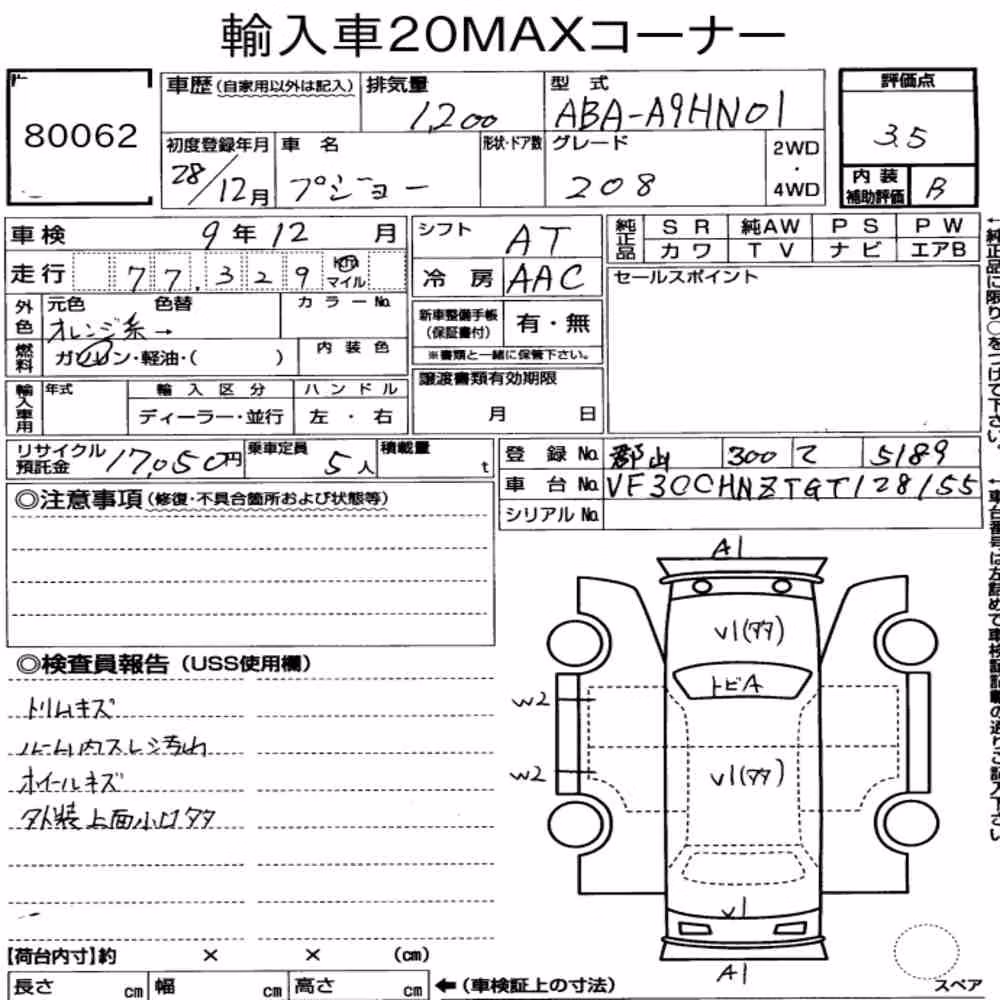 輸入車20MAXコーナー
80062
車歴(自家用以外は記入) 排気量 1,200 型式 ABA-A9HN01 評価点 3.5
初度登録年月 28/12月 車名 プジョー 形状・ドア数 グレード 208 2WD・4WD 内装補助評価 B
車検 9年12月 シフト AT 純正品 SR 純AW PS PW
カワ TV ナビ エアB
走行 77,329 km マイル 冷房 AAC セールスポイント
外色 元色 オレンジ系→ 色替 カラーNo. 新車整備手帳(保証書付) 有・無
燃料 ガソリン・軽油・( ) 内装色 ※書類と一緒に保管下さい。
輸入車用 年式 輸入区分 ディーラー・並行 ハンドル 左・右 譲渡書類有効期限 月 日
リサイクル預託金 17,050円 乗車定員 5人 積載量 t
登録No. 郡山 300 て 5189
車台No. VF3CCHNZTGT128155
シリアルNo.
◎注意事項(修復・不具合箇所および状態等)
◎検査員報告(USS使用欄)
トリムキズ
ルーム内スレシ汚れ
ホイールキズ
外装上面小ロタタ
A1
V1(タタ)
トビA
W2
W2
V1(タタ)
V1
A1
スペア
【荷台内寸】約 × × (cm)
長さ cm 幅 cm 高さ cm ←(車検証上の寸法)
←純正品に限り○をつけて下さい。
←車台番号は左詰めで車検証記載の通りご記入下さい